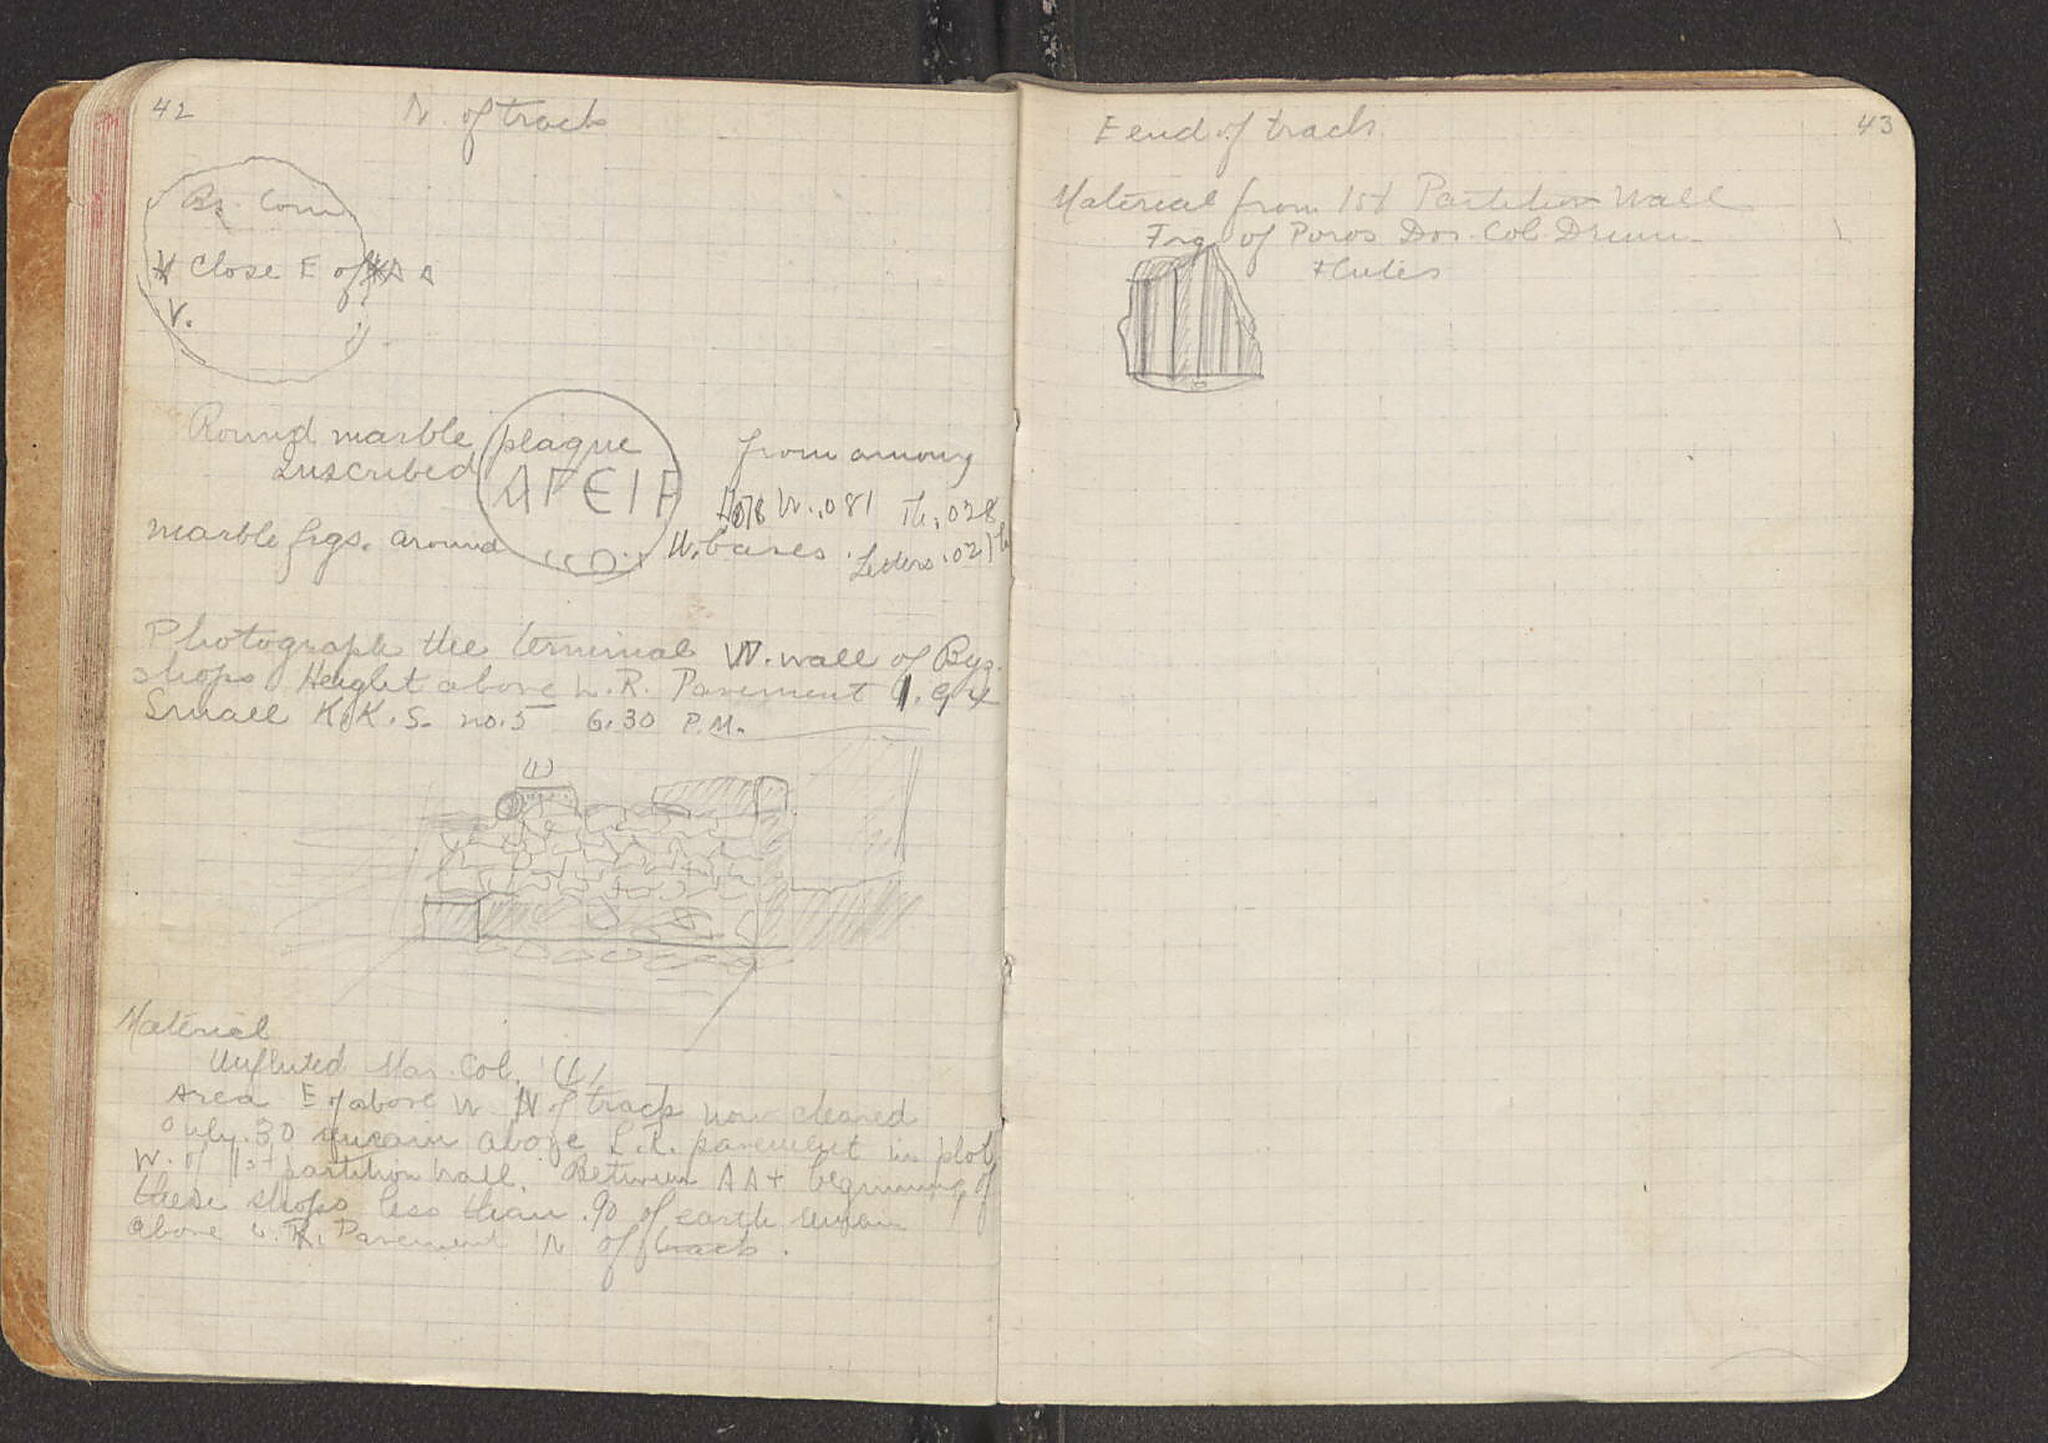 42
N. of track
Bz. Coin
Close E of A A
V.
Round marble plaque from among
Inscribed ΑΓΕΙΡ
H .078 W. .081 Th. .028
marble frgs. around W. bases. Letters .021 h
Photograph the terminal W. wall of Byz.
shops Height above L.R. Pavement 1.94
Small K.K.S. no. 5 6.30 P.M.
(1)
Material
Unfluted Mar. Col. (1)
Area E of above W N of track now cleared
Only .30 remain above L.R. pavement in plot
W. of 1st partition wall. Between AA + beginning of
these shops less than .90 of earth remain
above L.R. Pavement N of track.
43
E end of track
Material from 1st Partition Wall
Frg. of Poros Dor. Col. Drum
Flutes